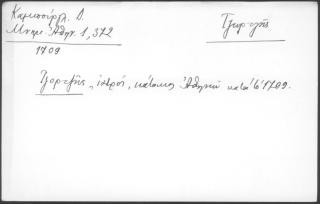 Καμπούρογλ. Δ.
Μνημ. Ἀθην. 1, 372
1709
Τζωρτζῆς
Τζωρτζῆς, ἰατρός, κάτοικος Ἀθηνῶν κατὰ τὸ 1709.